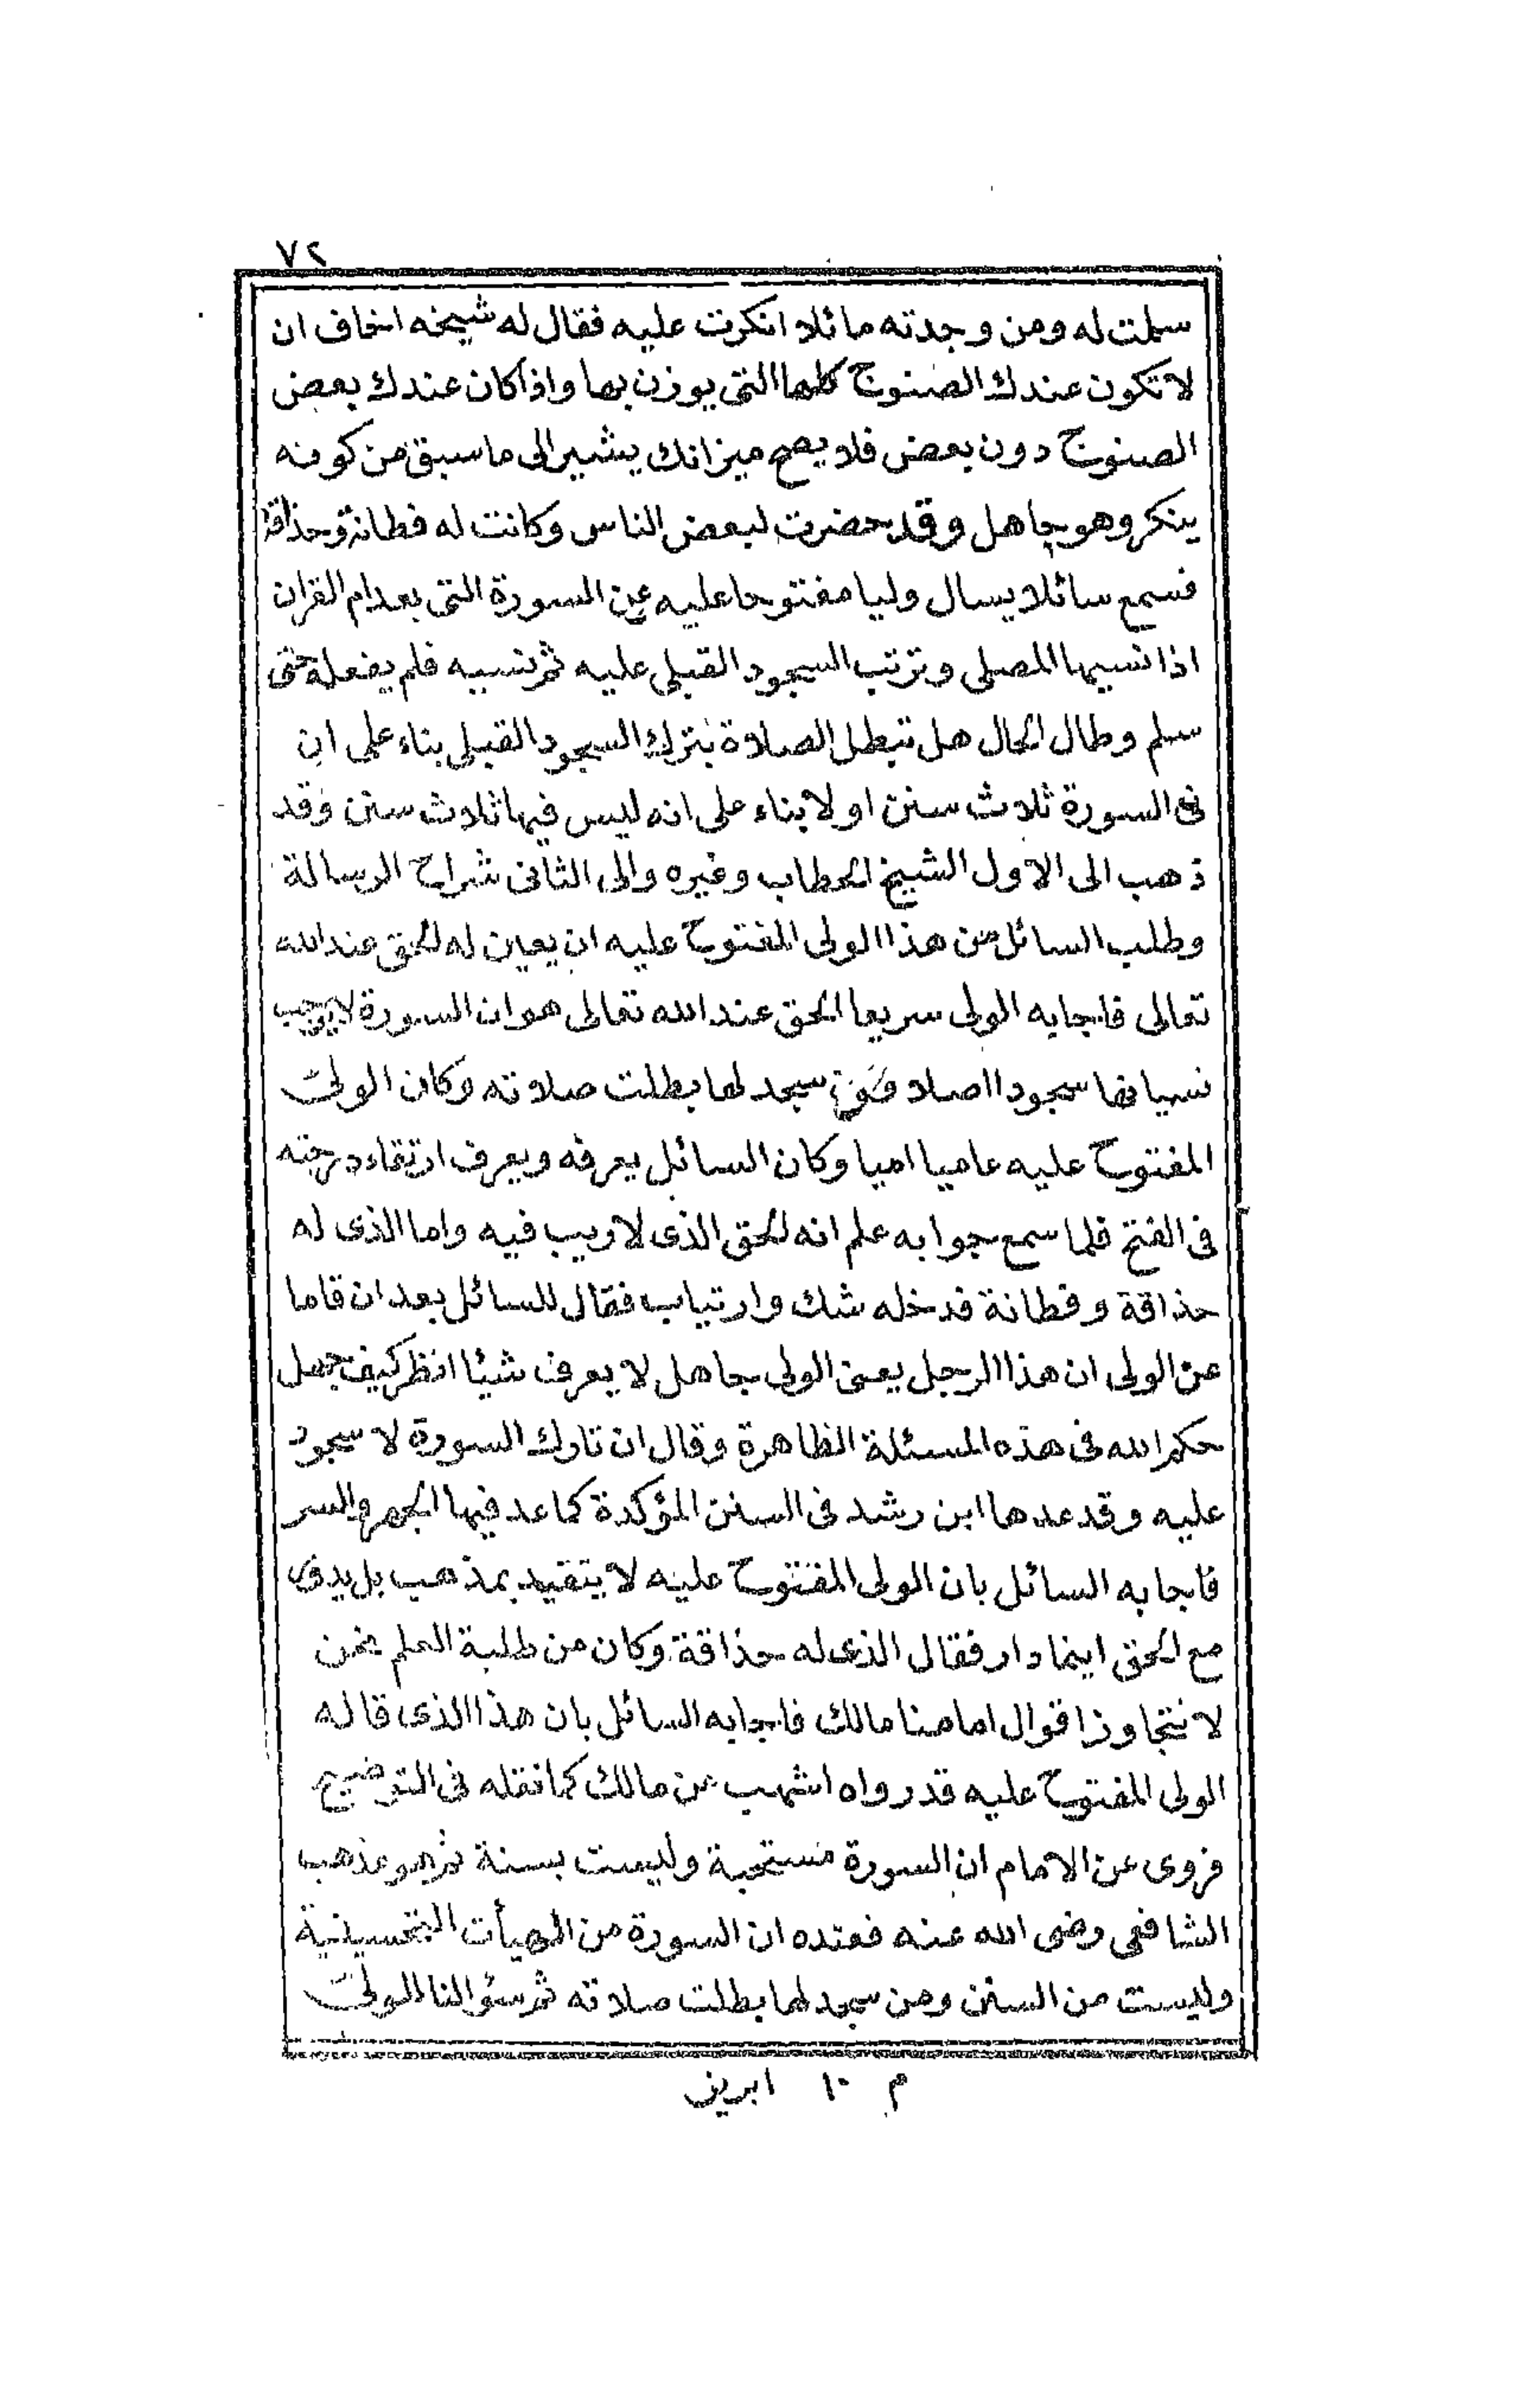 ٧٢
سلمت له ومن وجدته مائلا انكرت عليه فقال له شيخه اخاف ان
لا تكون عندك الصنوج كلها التى يوزن بها واذا كان عندك بعض
الصنوج دون بعض فلا يصح ميزانك يشير الى ما سبق من كونه
ينكر وهو جاهل وقد حضرت لبعض الناس وكانت له فطانة وحذاقة
فسمع سائلا يسال وليا مفتوحا عليه عن السورة التى بعد ام القران
اذا نسيها المصلى وترتب السجود القبلى عليه ثم نسيه فلم يفعله حتى
سلم وطال الحال هل تبطل الصلاة بترك السجود القبلى بناء على ان
فى السورة ثلاث سنن او لا بناء على انه ليس فيها ثلاث سنن وقد
ذهب الى الاول الشيخ الحطاب وغيره والى الثانى شراح الرسالة
وطلب السائل من هذا الولى المفتوح عليه ان يعين له الحق عند الله
تعالى فاجابه الولى سريعا الحق عند الله تعالى هو ان السورة لا يوجب
نسيانها سجودا اصلا ومن سجد لها بطلت صلاته وكان الولى
المفتوح عليه عاميا اميا وكان السائل يعرفه ويعرف ارتقاء درجته
فى الفتح فلما سمع جوابه علم انه الحق الذى لا ريب فيه واما الذى له
حذاقة وفطانة فدخله شك وارتياب فقال للسائل بعد ان قاما
عن الولى ان هذا الرجل يعنى الولى جاهل لا يعرف شيئا انظر كيف جهل
حكم الله فى هذه المسئلة الظاهرة وقال ان تارك السورة لا سجود
عليه وقد عدها ابن رشد فى السنن المؤكدة كما عد فيها الجهر والسر
فاجابه السائل بان الولى المفتوح عليه لا يتقيد بمذهب بل يدور
مع الحق اينما دار فقال الذى له حذاقة وكان من طلبة العلم نحن
لا نتجاوز اقوال امامنا مالك فاجابه السائل بان هذا الذى قاله
الولى المفتوح عليه قد رواه اشهب عن مالك كما نقله فى التوضيح
فروى عن الامام ان السورة مستحبة وليست بسنة ثم هو مذهب
الشافعى رضى الله عنه فعنده ان السورة من الهيأت التحسينية
وليست من السنن ومن سجد لها بطلت صلاته ثم سؤالنا للولى
م ١٠ ابريز